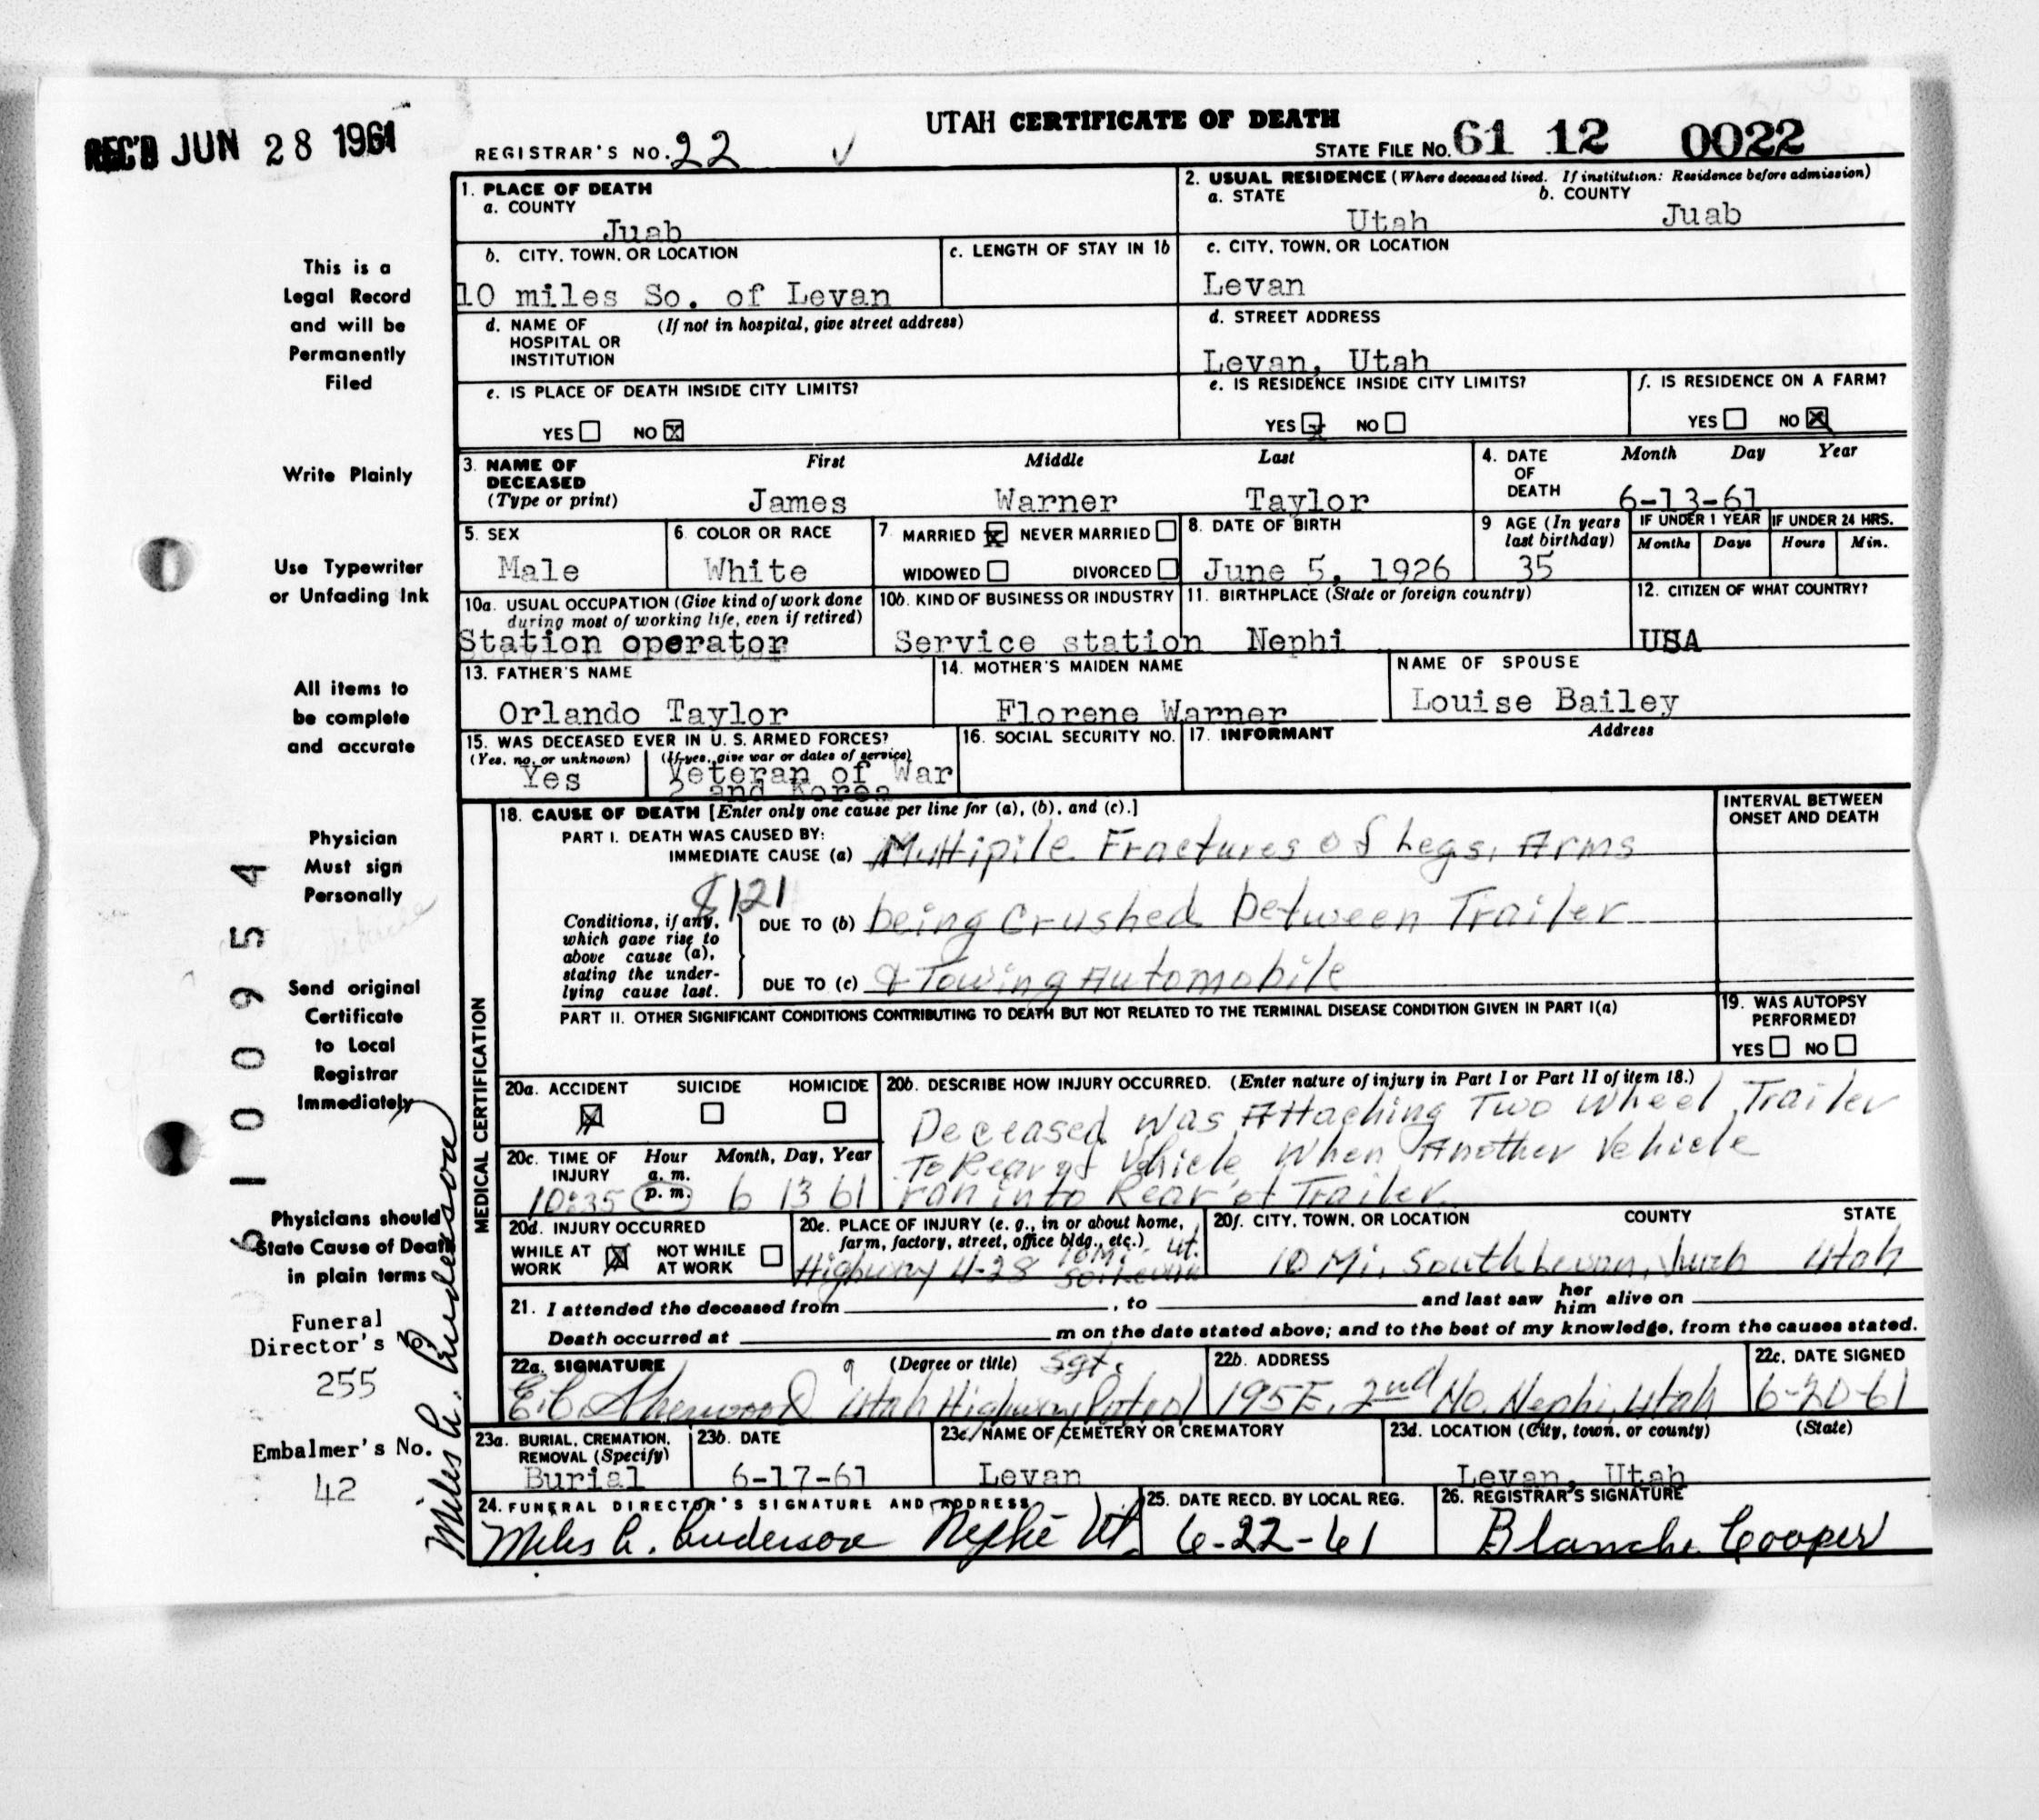 REC'D JUN 28 1961
UTAH CERTIFICATE OF DEATH
REGISTRAR'S NO. 22
STATE FILE NO. 61 12 0022
This is a
Legal Record
and will be
Permanently
Filed
Write Plainly
Use Typewriter
or Unfading Ink
All items to
be complete
and accurate
Physician
Must sign
Personally
Send original
Certificate
to Local
Registrar
Immediately
Physicians should
State Cause of Death
in plain terms
Funeral
Director's
255
Embalmer's No.
42
6100954
Miles A. Anderson
1. PLACE OF DEATH
a. COUNTY
Juab
b. CITY, TOWN, OR LOCATION
10 miles So. of Levan
c. LENGTH OF STAY IN 1b
d. NAME OF (If not in hospital, give street address)
HOSPITAL OR
INSTITUTION
e. IS PLACE OF DEATH INSIDE CITY LIMITS?
YES NO X
2. USUAL RESIDENCE (Where deceased lived. If institution: Residence before admission)
a. STATE b. COUNTY
Utah Juab
c. CITY, TOWN, OR LOCATION
Levan
d. STREET ADDRESS
Levan, Utah
e. IS RESIDENCE INSIDE CITY LIMITS?
YES X NO
f. IS RESIDENCE ON A FARM?
YES NO X
3. NAME OF DECEASED (Type or print) First Middle Last
James Warner Taylor
4. DATE OF DEATH Month Day Year
6-13-61
5. SEX
Male
6. COLOR OR RACE
White
7. MARRIED X NEVER MARRIED
WIDOWED DIVORCED
8. DATE OF BIRTH
June 5, 1926
9 AGE (In years last birthday)
35
IF UNDER 1 YEAR IF UNDER 24 HRS.
Months Days Hours Min.
10a. USUAL OCCUPATION (Give kind of work done
during most of working life, even if retired)
Station operator
10b. KIND OF BUSINESS OR INDUSTRY
Service station
11. BIRTHPLACE (State or foreign country)
Nephi
12. CITIZEN OF WHAT COUNTRY?
USA
13. FATHER'S NAME
Orlando Taylor
14. MOTHER'S MAIDEN NAME
Florene Warner
NAME OF SPOUSE
Louise Bailey
15. WAS DECEASED EVER IN U. S. ARMED FORCES?
(Yes, no, or unknown) (If yes, give war or dates of service)
Yes Veteran of War
2 and Korea
16. SOCIAL SECURITY NO.
17. INFORMANT Address
MEDICAL CERTIFICATION
18. CAUSE OF DEATH [Enter only one cause per line for (a), (b), and (c).]
INTERVAL BETWEEN
ONSET AND DEATH
PART I. DEATH WAS CAUSED BY:
IMMEDIATE CAUSE (a) Multipile Fractures of Legs, Arms
8121
Conditions, if any,
which gave rise to
above cause (a),
stating the under-
lying cause last.
DUE TO (b) being Crushed between Trailer
DUE TO (c) & Towing Automobile
PART II. OTHER SIGNIFICANT CONDITIONS CONTRIBUTING TO DEATH BUT NOT RELATED TO THE TERMINAL DISEASE CONDITION GIVEN IN PART I(a)
19. WAS AUTOPSY
PERFORMED?
YES NO
20a. ACCIDENT X SUICIDE HOMICIDE
20b. DESCRIBE HOW INJURY OCCURRED. (Enter nature of injury in Part I or Part II of item 18.)
Deceased Was Attaching Two Wheel Trailer
To Rear of Vehicle When Another Vehicle
ran into Rear of Trailer
20c. TIME OF INJURY Hour a. m. p. m. Month, Day, Year
10:35 6 13 61
20d. INJURY OCCURRED
WHILE AT WORK X NOT WHILE AT WORK
20e. PLACE OF INJURY (e. g., in or about home,
farm, factory, street, office bldg., etc.)
Highway U-28 10 Mi. So. Levan Ut.
20f. CITY, TOWN, OR LOCATION COUNTY STATE
10 Mi. South Levan, Juab Utah
21. I attended the deceased from , to and last saw her him alive on
Death occurred at m on the date stated above; and to the best of my knowledge, from the causes stated.
22a. SIGNATURE (Degree or title) Sgt.
E.C. Sherwood Utah Highway Patrol
22b. ADDRESS
195 E. 2nd No. Nephi, Utah
22c. DATE SIGNED
6-20-61
23a. BURIAL, CREMATION,
REMOVAL (Specify)
Burial
23b. DATE
6-17-61
23c. NAME OF CEMETERY OR CREMATORY
Levan
23d. LOCATION (City, town, or county) (State)
Levan, Utah
24. FUNERAL DIRECTOR'S SIGNATURE AND ADDRESS
Miles A. Anderson Nephi Ut.
25. DATE RECD. BY LOCAL REG.
6-22-61
26. REGISTRAR'S SIGNATURE
Blanche Cooper